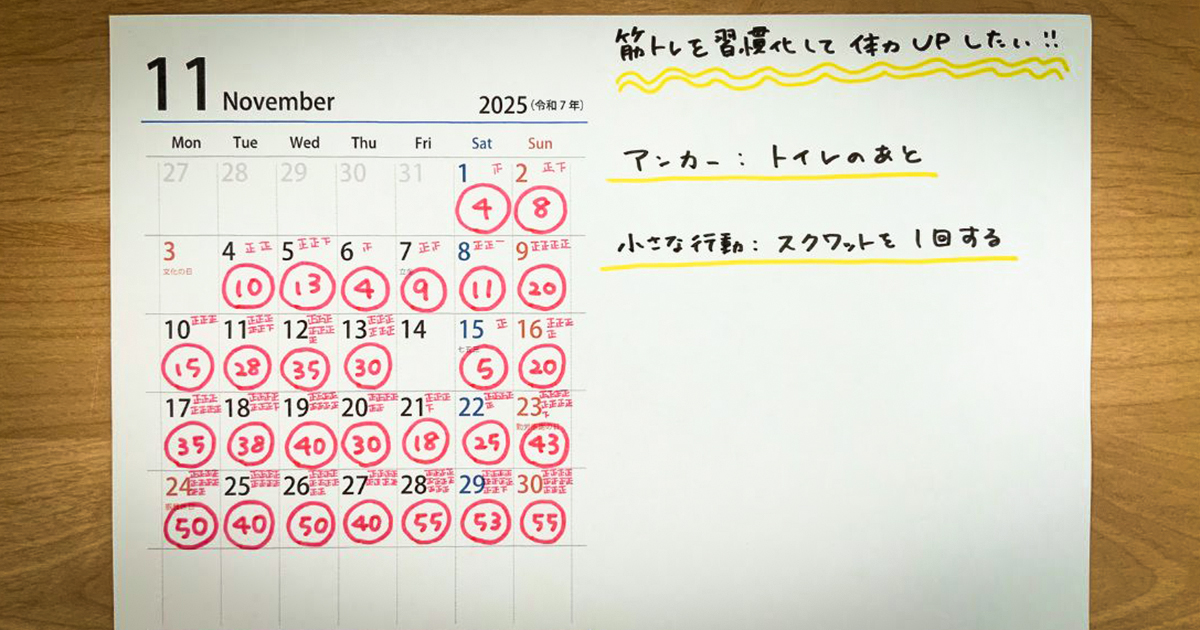 11 November 2025(令和7年)
Mon Tue Wed Thu Fri Sat Sun
27 28 29 30 31 1 正 2 正下
4 8
3 4 正正 5 正正下 6 正 7 正正 8 正正一 9 正正正正
文化の日
10 13 4 9 11 20
10 正正正 11 12 13 14 15 正 16 正正正正
15 28 35 30 5 20
17 18 19 20 21 22 23
35 38 40 30 18 25 43
24 25 26 27 28 29 30
50 40 50 40 55 53 55
筋トレを習慣化して体力UPしたい!!
アンカー:トイレのあと
小さな行動:スクワットを1回する